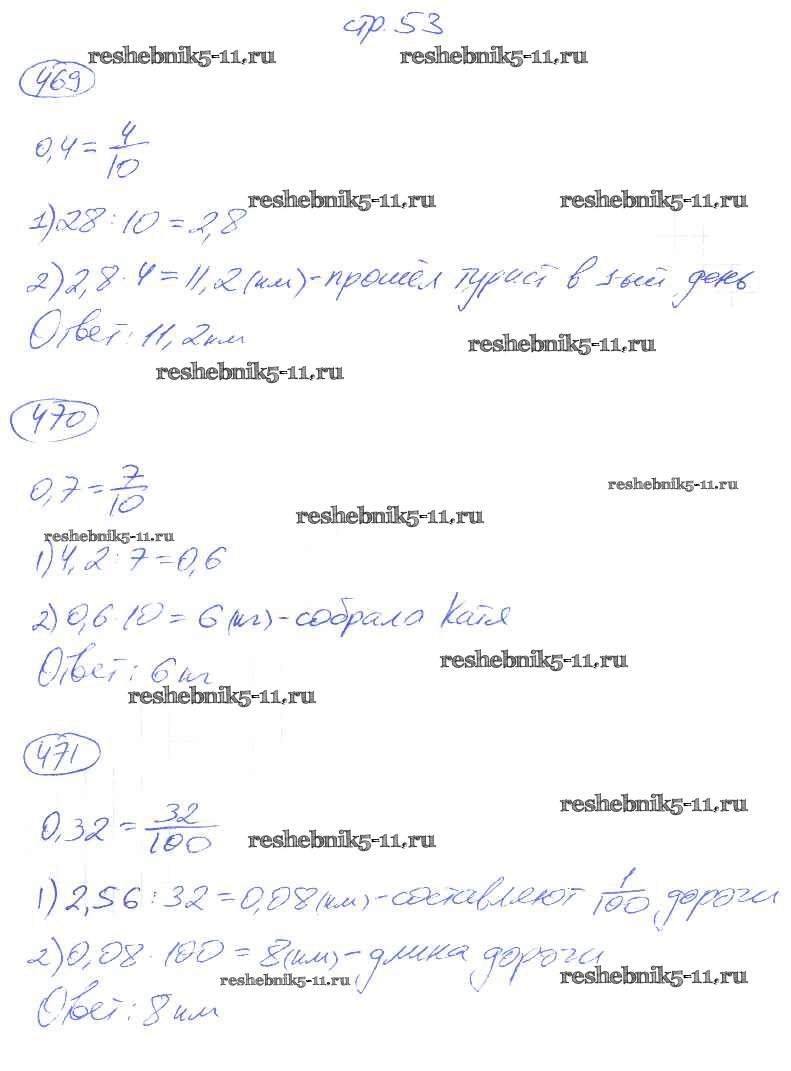 стр. 53
reshebnik5-11.ru reshebnik5-11.ru
469
0,4 = 4/10
reshebnik5-11.ru reshebnik5-11.ru
1) 28 : 10 = 2,8
2) 2,8 · 4 = 11,2 (км) - прошёл турист в 1-ый день
Ответ: 11,2 км
reshebnik5-11.ru
reshebnik5-11.ru
470
0,7 = 7/10
reshebnik5-11.ru
reshebnik5-11.ru
reshebnik5-11.ru
1) 4,2 : 7 = 0,6
2) 0,6 · 10 = 6 (кг) - собрала Катя
Ответ: 6 кг
reshebnik5-11.ru
reshebnik5-11.ru
471
0,32 = 32/100
reshebnik5-11.ru
reshebnik5-11.ru
1) 2,56 : 32 = 0,08 (км) - составляют 1/100 дороги
2) 0,08 · 100 = 8 (км) - длина дороги
reshebnik5-11.ru reshebnik5-11.ru
Ответ: 8 км